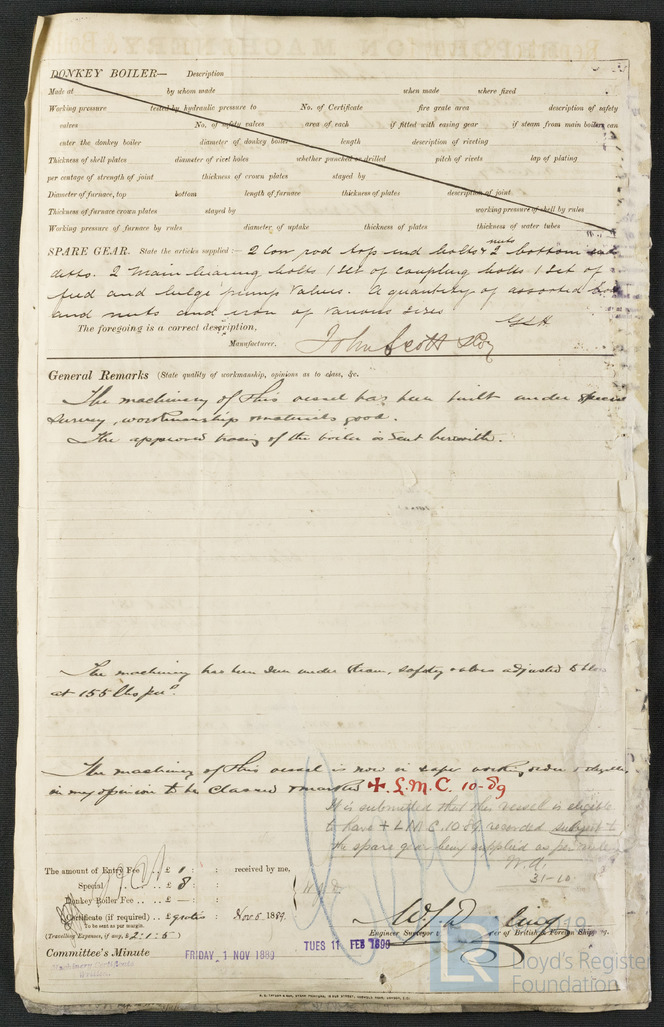 DONKEY BOILER— Description
Made at by whom made when made where fixed
Working pressure tested by hydraulic pressure to No. of Certificate fire grate area description of safety
valves No. of safety valves area of each if fitted with easing gear if steam from main boilers can
enter the donkey boiler diameter of donkey boiler length description of riveting
Thickness of shell plates diameter of rivet holes whether punched or drilled pitch of rivets lap of plating
per centage of strength of joint thickness of crown plates stayed by
Diameter of furnace, top bottom length of furnace thickness of plates description of joint
Thickness of furnace crown plates stayed by working pressure of shell by rules
Working pressure of furnace by rules diameter of uptake thickness of plates thickness of water tubes
SPARE GEAR. State the articles supplied:— 2 Con rod top end bolts & nuts 2 bottom end
ditto. 2 Main bearing bolts 1 set of coupling bolts. 1 Set of
feed and bilge pump Valves. A quantity of assorted bolts
and nuts and iron of various sizes
The foregoing is a correct description,
Manufacturer. John Scott
General Remarks (State quality of workmanship, opinions as to class, &c.
The machinery of this vessel has been built under special
survey, workmanship & materials good.
The approved tracing of the boiler is sent herewith.
The machinery has been seen under steam, safety valves adjusted to blow
at 155 lbs per □".
The machinery of this vessel is now in safe working order &
in my opinion to be classed & marked ✠ L.M.C. 10-89
It is submitted that this vessel is eligible
to have + LMC 10.89 recorded subject to
the spare gear being supplied as per rule
31-10
The amount of Entry Fee .. £ 1 : : received by me,
Special .. .. £ 8 : :
Donkey Boiler Fee .. .. £ — : :
Certificate (if required) .. £ gratis : Nov 6. 1889.
To be sent as per margin.
(Travelling Expenses, if any, £ 2:1:5)
Engineer Surveyor of British & Foreign Shipping.
Committee's Minute
FRIDAY, 1 NOV 1889
TUES 11 FEB 1890
Machinery Certificate
Written
LR
Lloyd's Register
Foundation